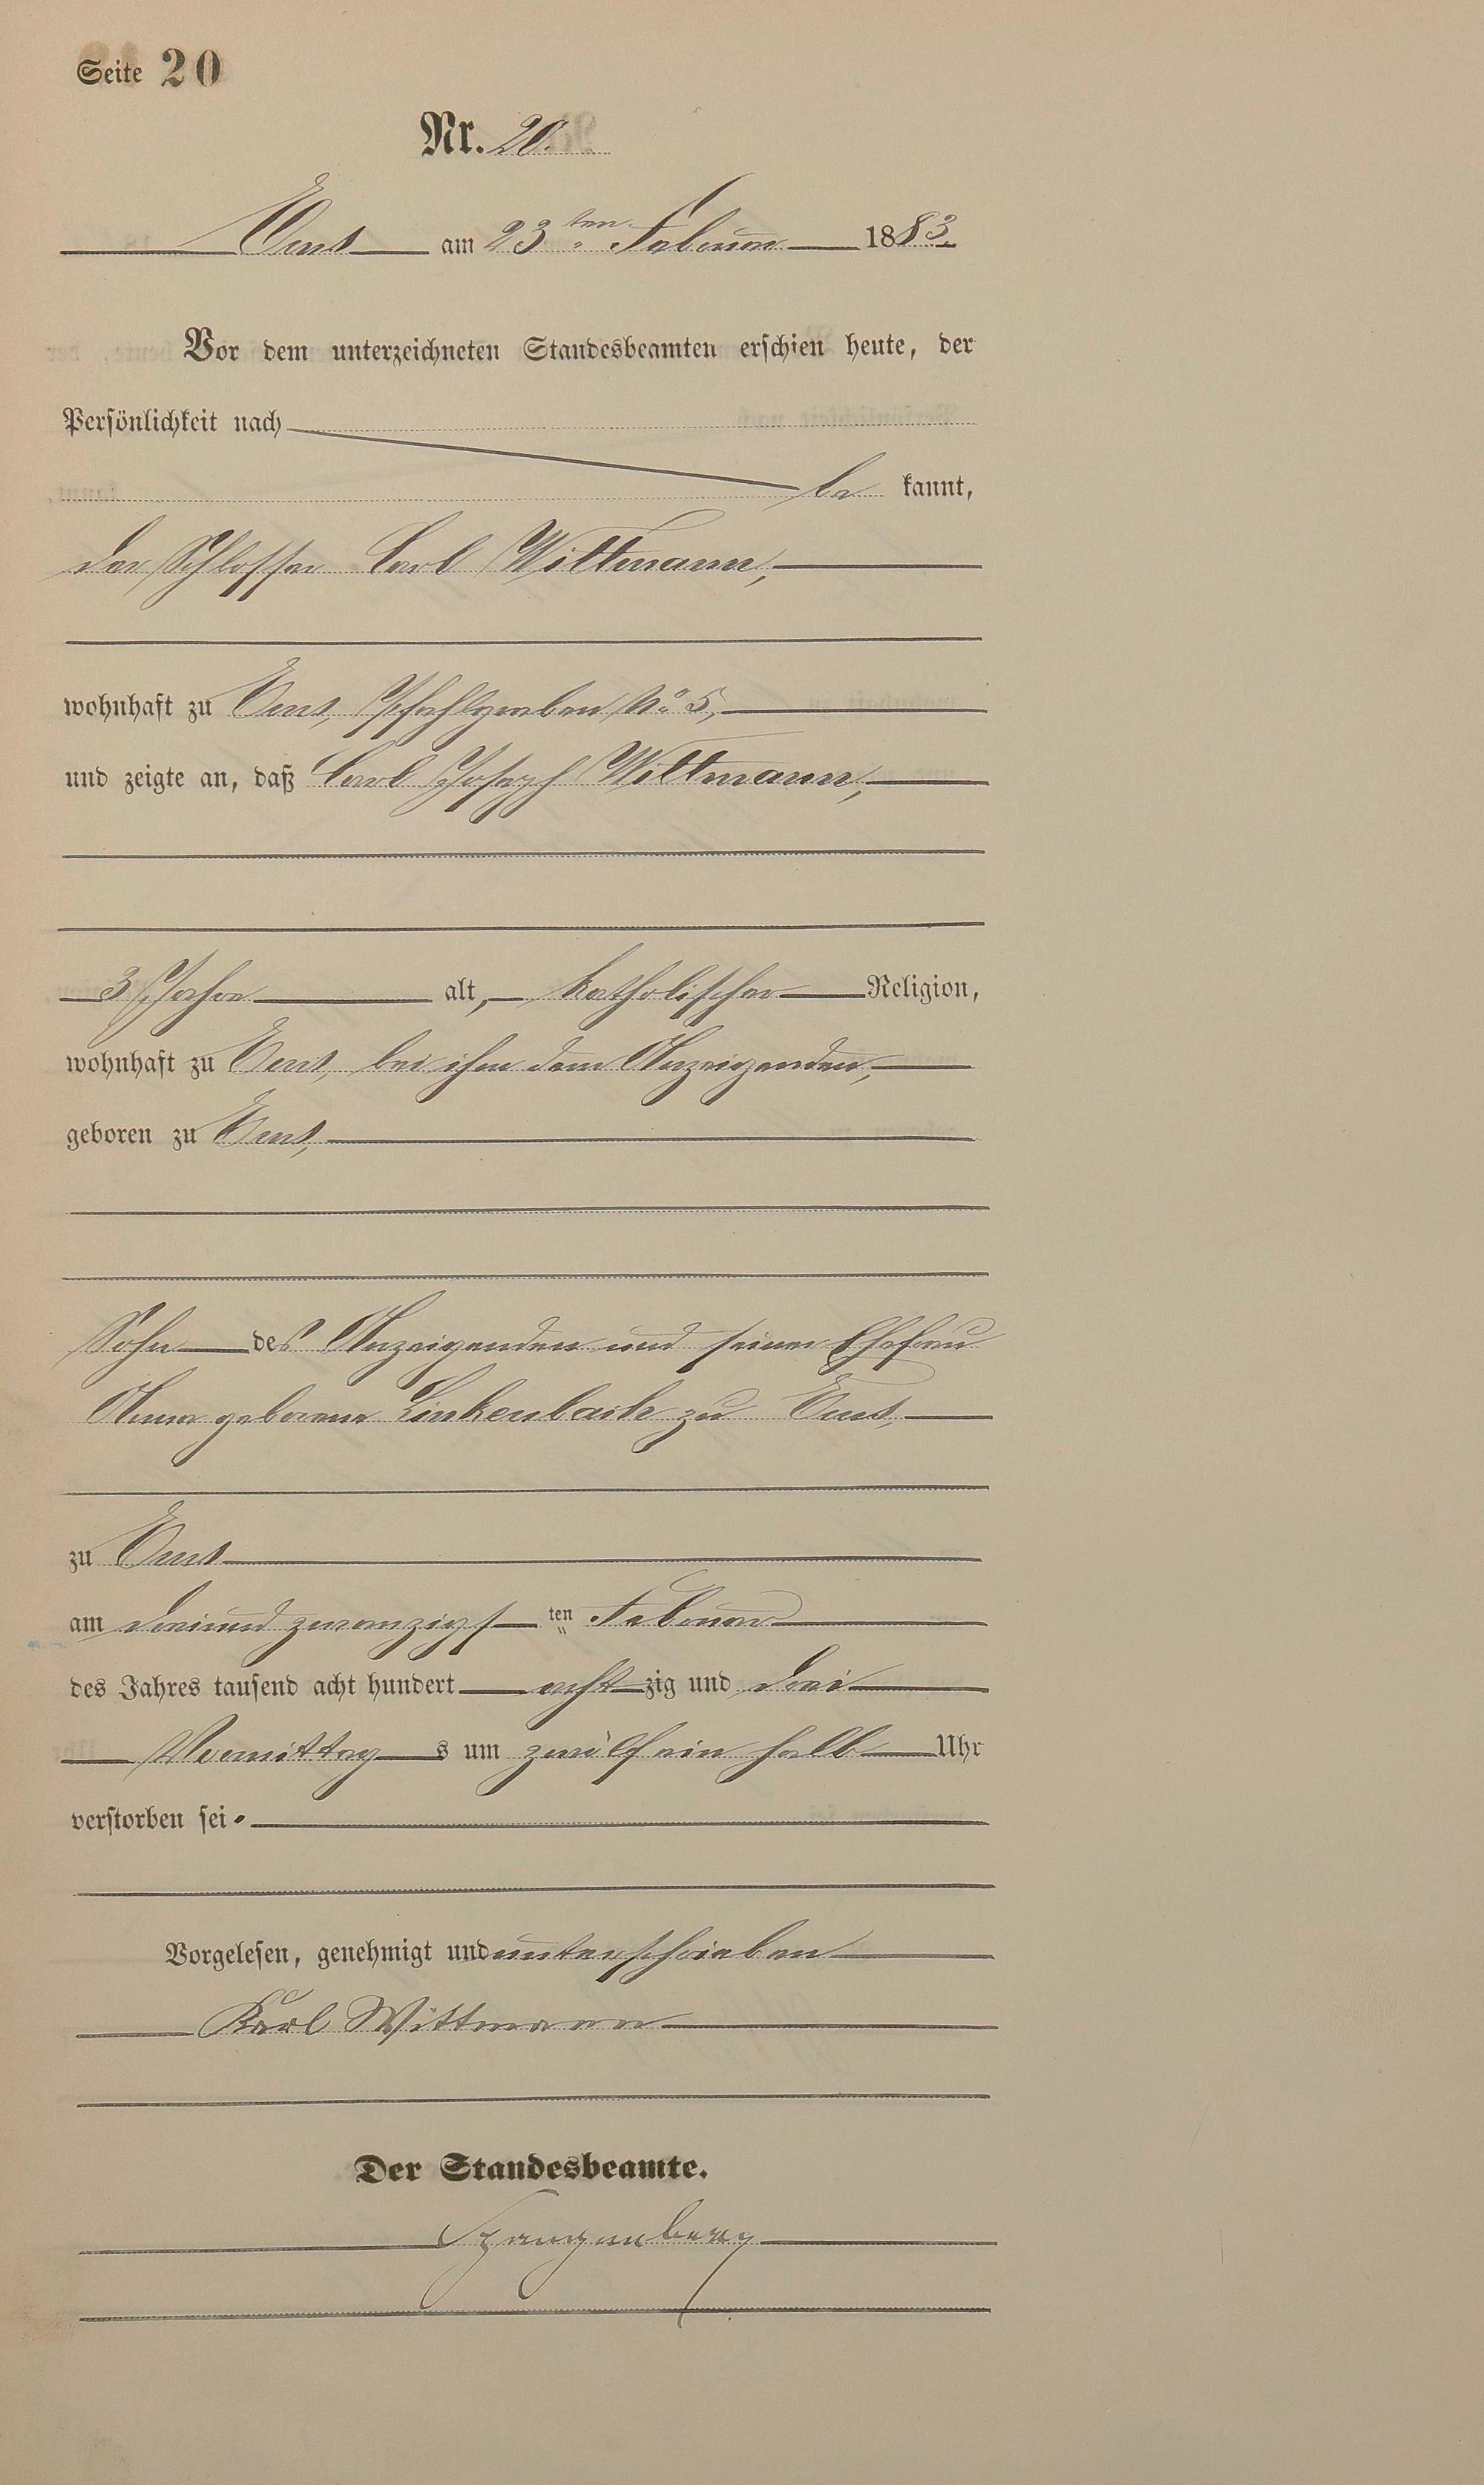 Seite 20
Nr. 20.
Ems am 23ten Februar 1883.
Vor dem unterzeichneten Standesbeamten erschien heute, der
Persönlichkeit nach
be kannt,
der Schlosser Carl Wittmann,
wohnhaft zu Ems, Pfahlgraben No 5,
und zeigte an, daß Carl Joseph Wittmann,
3 Jahre alt, katholischer Religion,
wohnhaft zu Ems, bei ihm dem Anzeigenden,
geboren zu Ems,
Sohn des Anzeigenden und seiner Ehefrau
Anna geborene Linkenbach zu Ems,
zu Ems
am dreiund zwanzigsten Februar
des Jahres tausend acht hundert achtzig und drei
Vormittags um zwölf ein halb Uhr
verstorben sei.
Vorgelesen, genehmigt und unterschrieben
Karl Wittmann
Der Standesbeamte.
Spangenberg